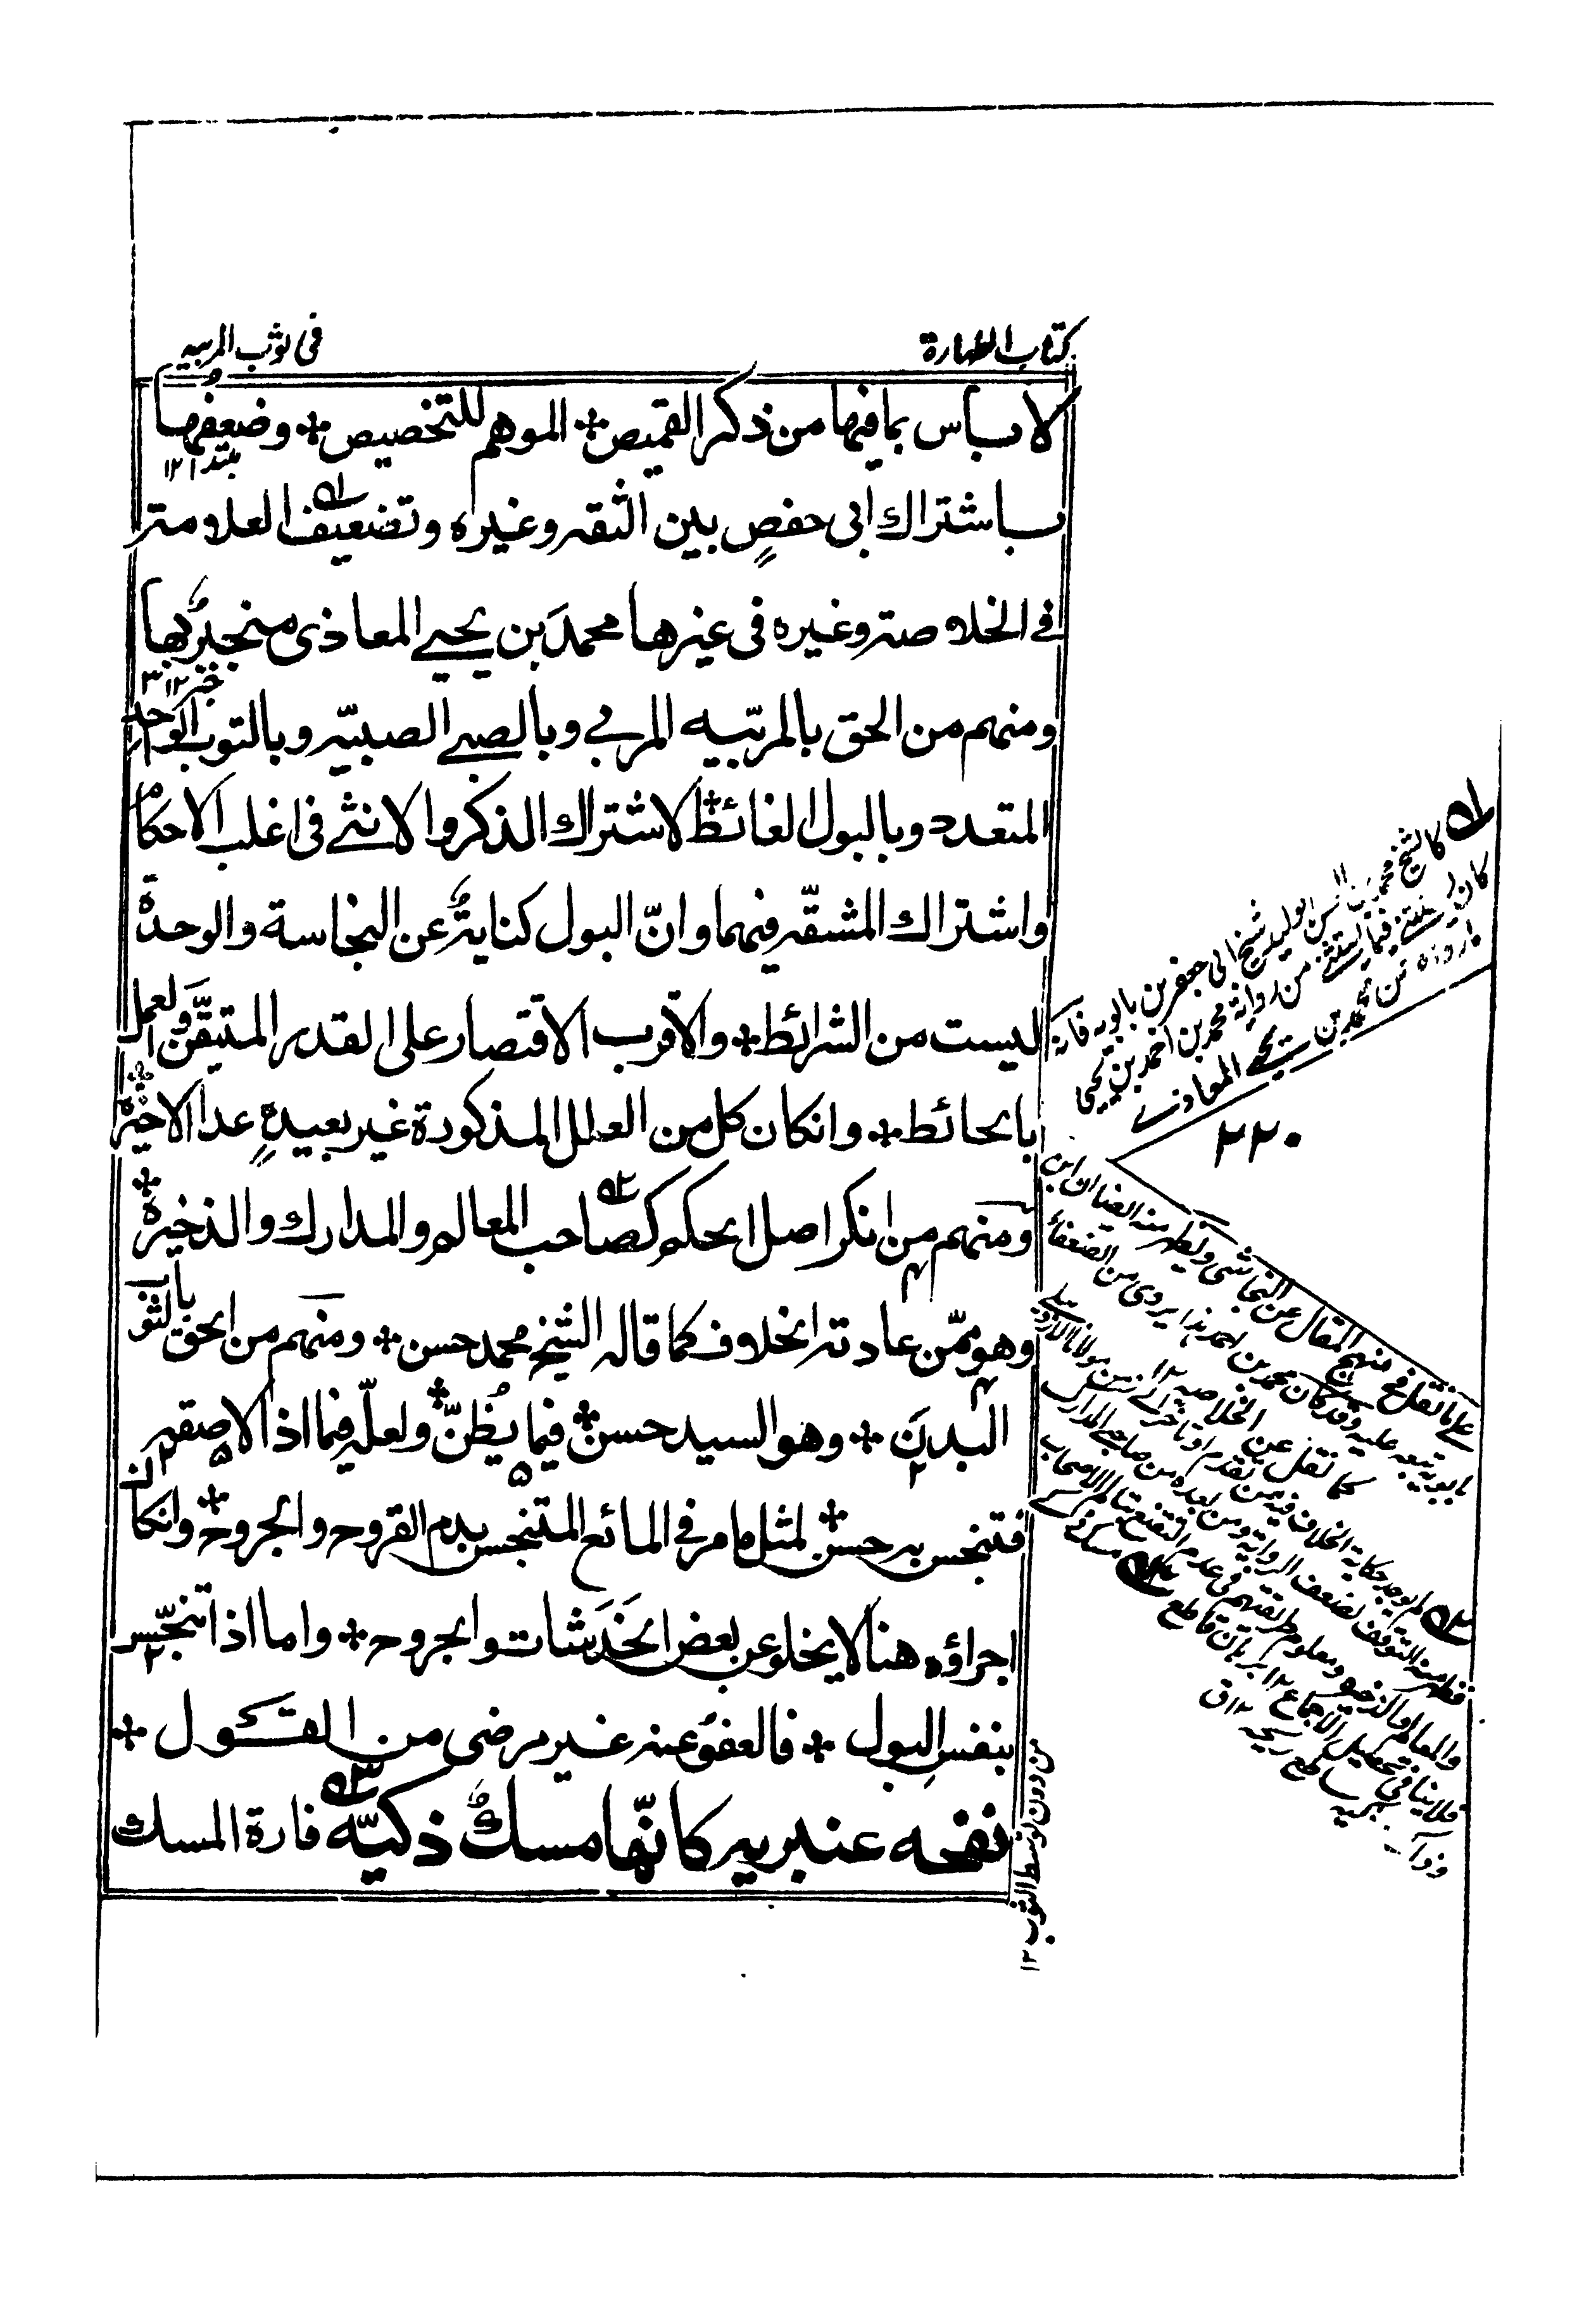 كتاب الطهارة
فى ثوب المربيه
لا باس بما فيها من ذكر القميص * الموهم للتخصيص * وضعفها
مبتدا ١٢
باشتراك ابى حفصٍ بين الثقه وغيره وتضعيف العلامة
في الخلاصة وغيره فى غيرها محمد بن يحيى المعاذى منجبرٌ بها
خبر ١٢
ومنهم من الحق بالمربّيه المربي وبالصبي الصبيّه وبالثوب الواحد
المتعدد وبالبول الغائط * لاشتراك الذكر والانثى فى اغلب الاحكام
واشتراك المشقّه فيهما وانّ البول كنايةٌ عن النجاسة والوحدة
ليست من الشرائط * والاقرب الاقتصار على القدر المتيقّن والعمل
بالحائط * وانكان كل من العلل المذكورة غير بعيدةٍ عدا الاخيرة *
ومنهم من انكر اصل الحكم كصاحب المعالم والمدارك والذخيرة *
وهو ممّن عادته الخلاف كما قاله الشيخ محمد حسن * ومنهم من الحق بالثوب
البدن * وهو السيد حسن * فيما يُظنّ * ولعلّه فيما اذا الاصقه
فتنجس به حسن * لمثل ما مر فى المائع المتنجس بدم القروح والجروح * وانكان
اجراؤه هنا لا يخلو عن بعض الخَدَشات والجروح * واما اذا تنجّس
بنفس البول * فالعفوُ عنه غير مرضى من القول *
نفحه عنبريه كانّها مسكٌ ذكيّه فارة المسك
كالشيخ محمد بن الحسن بن الوليد شيخ ابى جعفر بن بابويه فانه
كان فيما يستثنى من رواية محمد بن احمد بن يحيى
ما رواه عن محمد بن يحيى المعاذى
٢٢٠
على ما نقل فى منهج المقال عن النجاشى ويظهر منه ايضا ان ابن
بابويه تبعه عليه وقد كان محمد بن احمد هذا يروى عن الضعفاء
كما نقل عن الخلاصه ١٢
لم يوجد حكاية الخلاف فيه ممن تقدم او تاخر الا عن مولانا الاردبيلى
فظاهر منه التوقف لضعف الرواية ومن بعده من صاحبى المدارك
والمعالم والذخيرة ومعلوم طريقتهم فى عدم التقنع بتسالم الاصحاب
فلا ينافى تحصيل الاجماع ١٢ برهان قاطع
من دون توسط الثوب ١٢